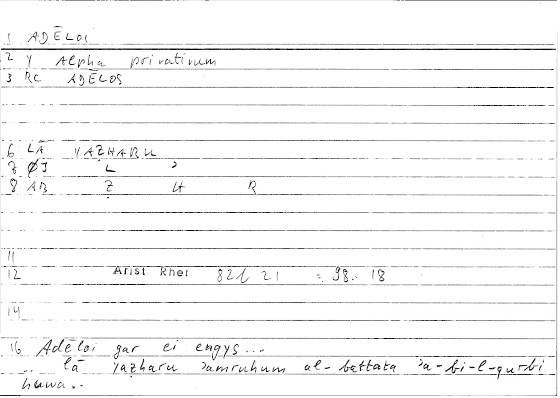 1 ADĒLOI
2 Y Alpha privativum
3 RC ADĒLOS
6 LĀ YAẒHARU
7 ØJ L ʾ
8 AB Ẓ H R
11
12 Arist Rhet 82b 21 = 98. 18
14
16 Adēloi gar ei engys...
.. lā yaẓharu ʾamruhum al-battata ʾa-bi-l-qurbi
huwa..